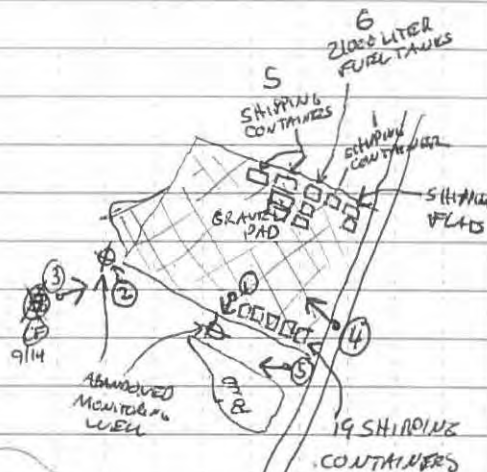 6
21000 LITER
FUEL TANKS
5
SHIPPING
CONTAINERS
1
SHIPPING
CONTAINER
SHIPPING
FLATS
GRAVEL
PAD
3
2
1
4
5
9/14
ABANDONED
MONITORING
WELL
19 SHIPPING
CONTAINERS